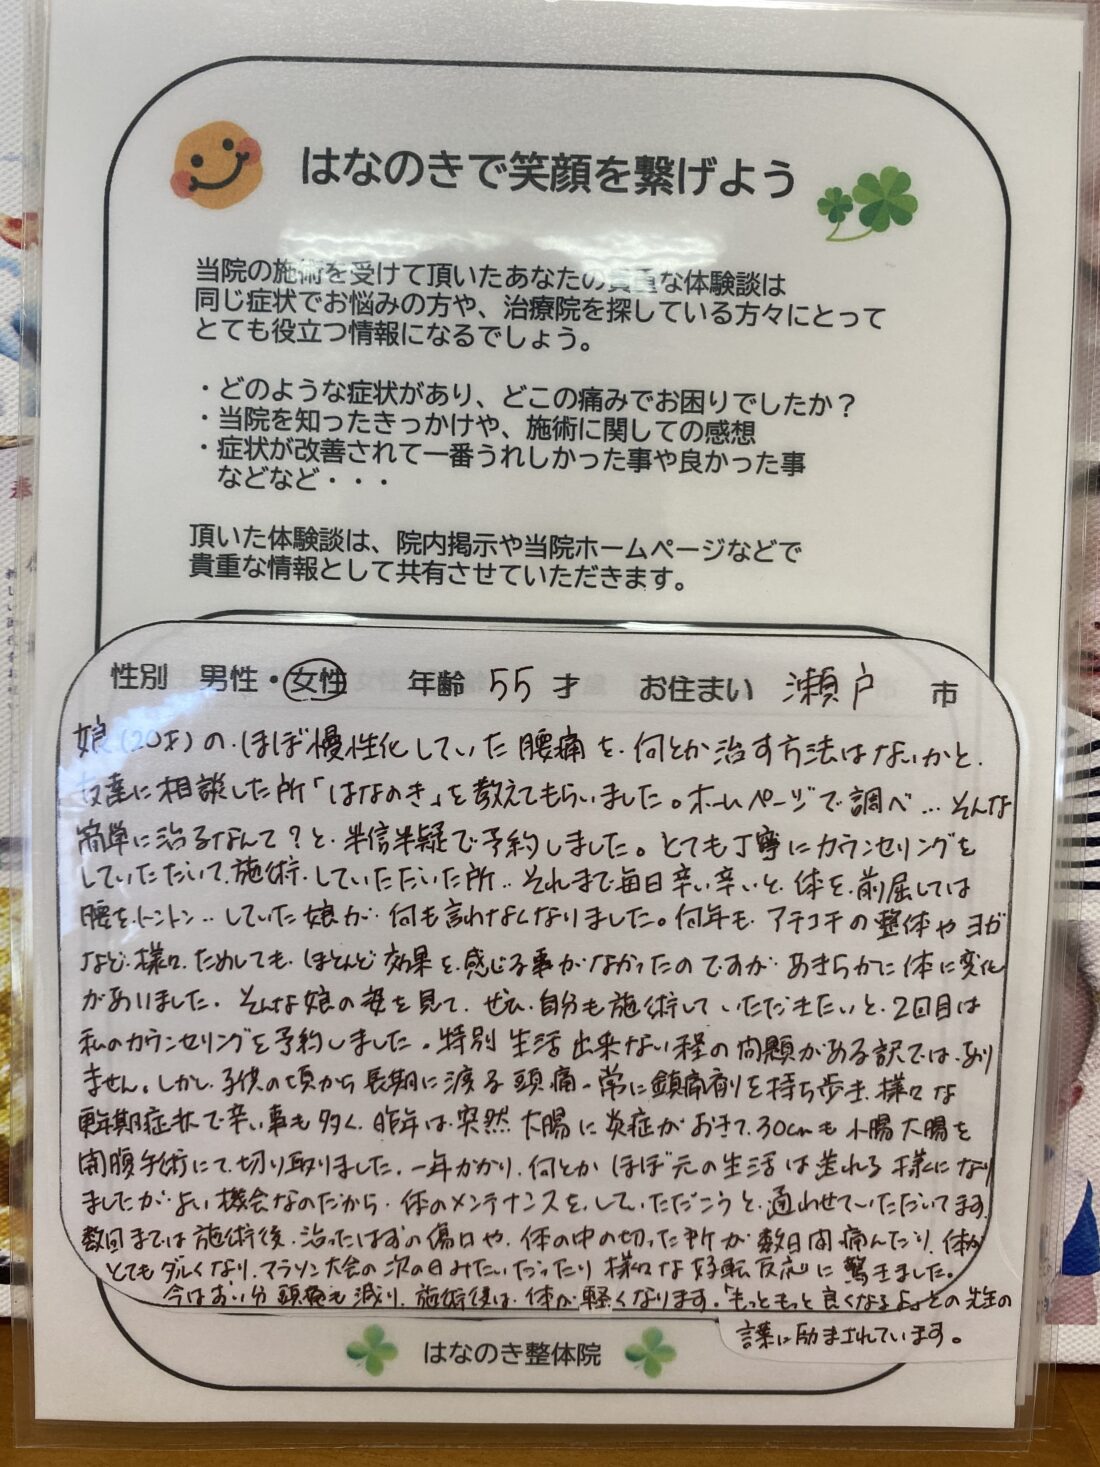 はなのきで笑顔を繋げよう
当院の施術を受けて頂いたあなたの貴重な体験談は
同じ症状でお悩みの方や、治療院を探している方々にとって
とても役立つ情報になるでしょう。
・どのような症状があり、どこの痛みでお困りでしたか？
・当院を知ったきっかけや、施術に関しての感想
・症状が改善されて一番うれしかった事や良かった事
などなど・・・
頂いた体験談は、院内掲示や当院ホームページなどで
貴重な情報として共有させていただきます。
性別 男性・女性 年齢 55 才 お住まい 瀬戸 市
娘(20才)の、ほぼ慢性化していた腰痛を、何とか治す方法はないかと、
友達に相談した所「はなのき」を教えてもらいました。ホームページで調べ…そんな
簡単に治るなんて？と、半信半疑で予約しました。とても丁寧にカウンセリングを
していただいて、施術、していただいた所‥それまで毎日辛い辛いと、体を、前屈しては
腰を、トントン‥していた娘が、何も言わなくなりました。何年も、アチコチの整体やヨガ
など、様々、ためしても、ほとんど効果を感じる事がなかったのですが、あきらかに体に変化
がありました。そんな娘の姿を見て、ぜひ、自分も施術して、いただきたいと、2回目は
私のカウンセリングを予約しました。特別生活出来ない程の問題がある訳では、あり
ません。しかし、子供の頃から長期に渡る頭痛、常に鎮痛剤を持ち歩き、様々な
更年期症状で辛い事も多く、昨年は、突然大腸に炎症がおきて、30cmも小腸大腸を
開腹手術にて、切り取りました。一年かかり、何とかほぼ元の生活は送れる様になり
ましたが、よい機会なのだから、体のメンテナンスを、していただこうと、通わせていただいてます。
数回までは施術後、治ったはずの傷口や、体の中の切った所が数日間痛んだり、体が
とてもダルくなり、マラソン大会の次の日みたいだったり様々な好転反応に驚きました。
今はずい分頭痛も減り、施術後は、体が軽くなります。「もっともっと良くなるよ」との先生の
言葉に励まされています。
はなのき整体院